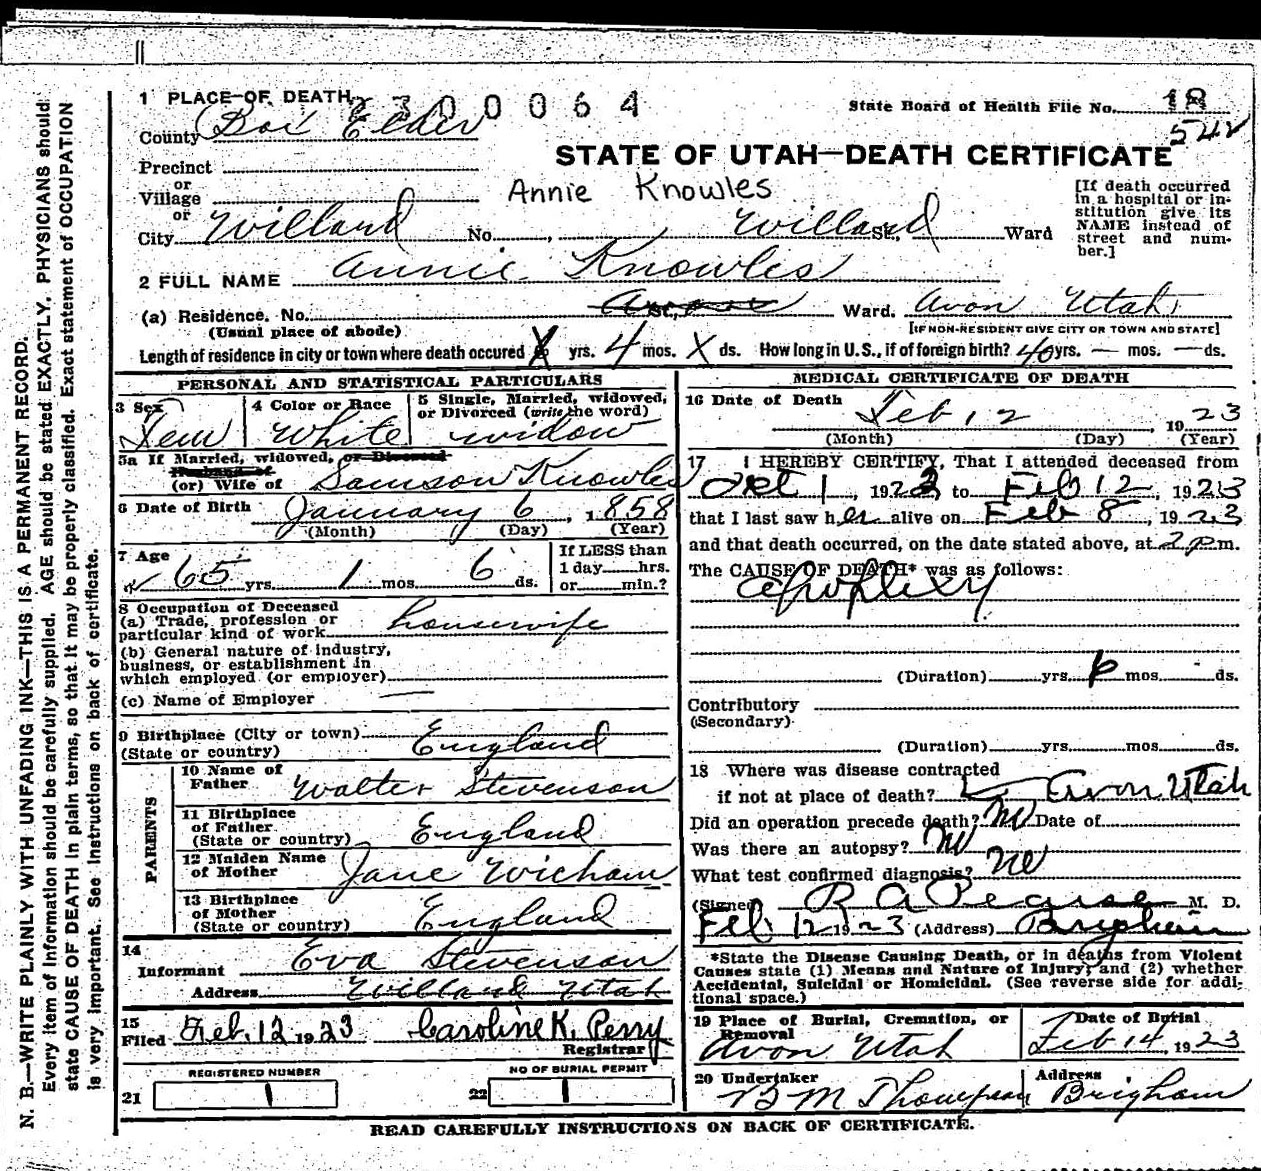 N. B.—WRITE PLAINLY WITH UNFADING INK—THIS IS A PERMANENT RECORD.
Every item of information should be carefully supplied. AGE should be stated EXACTLY. PHYSICIANS should
state CAUSE OF DEATH in plain terms, so that it may be properly classified. Exact statement of OCCUPATION
is very important. See Instructions on back of certificate.
1 PLACE OF DEATH 2300064
State Board of Health File No. 18
542
County Box Elder
STATE OF UTAH—DEATH CERTIFICATE
Precinct
or
Village
or
Annie Knowles
[If death occurred in a hospital or institution give its NAME instead of street and number.]
City Willard No. , Willard St., Ward
2 FULL NAME Annie Knowles
(a) Residence. No. St., Ward. Avon Utah
(Usual place of abode) [IF NON-RESIDENT GIVE CITY OR TOWN AND STATE]
Length of residence in city or town where death occured X yrs. 4 mos. X ds. How long in U.S., if of foreign birth? 40 yrs. — mos. — ds.
PERSONAL AND STATISTICAL PARTICULARS
3 Sex Fem
4 Color or Race White
5 Single, Married, widowed, or Divorced (write the word) widow
5a If Married, widowed, or Divorced
Husband of
(or) Wife of Samson Knowles
6 Date of Birth January 6, 1858
(Month) (Day) (Year)
7 Age 65 yrs. 1 mos. 6 ds.
If LESS than
1 day hrs.
or min.?
8 Occupation of Deceased
(a) Trade, profession or
particular kind of work housewife
(b) General nature of industry,
business, or establishment in
which employed (or employer)
(c) Name of Employer —
9 Birthplace (City or town)
(State or country) England
PARENTS
10 Name of
Father Walter Stevenson
11 Birthplace
of Father
(State or country) England
12 Maiden Name
of Mother Jane Wicham
13 Birthplace
of Mother
(State or country) England
14
Informant Eva Stevenson
Address Willard Utah
15
Filed Feb. 12 1923 Caroline K. Perry
Registrar
REGISTERED NUMBER
21 1
NO OF BURIAL PERMIT
22 1
MEDICAL CERTIFICATE OF DEATH
16 Date of Death Feb 12, 1923
(Month) (Day) (Year)
17 I HEREBY CERTIFY, That I attended deceased from
Oct 1, 1922 to Feb 12, 1923
that I last saw her alive on Feb 8, 1923
and that death occurred, on the date stated above, at 2 p.m.
The CAUSE OF DEATH* was as follows:
apoplexy
(Duration) yrs. 6 mos. ds.
Contributory
(Secondary)
(Duration) yrs. mos. ds.
18 Where was disease contracted
if not at place of death? Avon Utah
Did an operation precede death? no Date of
Was there an autopsy? no
What test confirmed diagnosis? no
(Signed) R A Pearse M. D.
Feb 12 1923 (Address) Brigham
*State the Disease Causing Death, or in deaths from Violent
Causes state (1) Means and Nature of Injury; and (2) whether
Accidental, Suicidal or Homicidal. (See reverse side for additional space.)
19 Place of Burial, Cremation, or
Removal
Avon Utah
Date of Burial
Feb 14, 1923
20 Undertaker
B M Thompson
Address
Brigham
READ CAREFULLY INSTRUCTIONS ON BACK OF CERTIFICATE.